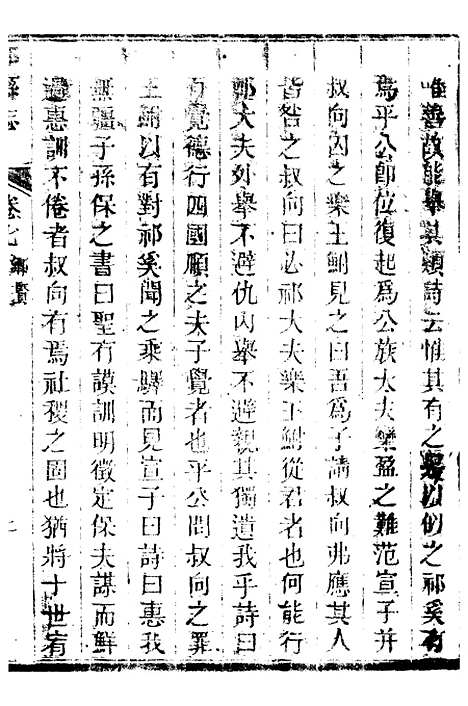 唯善故能舉其類詩云惟其有之是以似之祁奚有
焉平公卽位復起爲公族大夫欒盈之難范宣子并
叔向囚之樂王鮒見之曰吾爲子請叔向弗應其人
皆咎之叔向曰必祁大夫樂王鮒從君者也何能行
祁大夫外舉不避仇內舉不避親其獨遺我乎詩曰
有覺德行四國順之夫子覺者也平公問叔向之罪
王鮒以有對祁奚聞之乘驛而見宣子曰詩曰惠我
無疆子孫保之書曰聖有謨訓明徵定保夫謀而鮮
過惠訓不倦者叔向有焉社稷之固也猶將十世宥
縣志
卷七 鄉賢